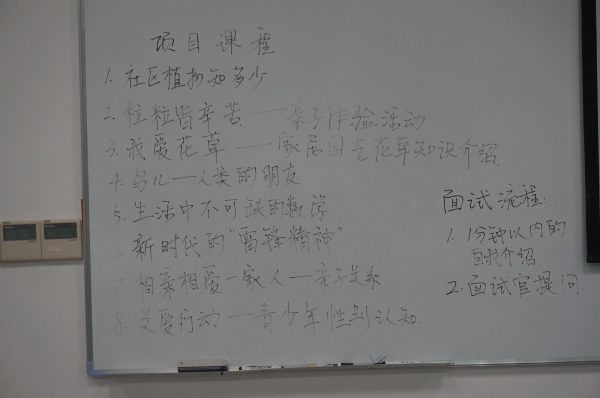 项目课程
1. 社区植物知多少
2. 粒粒皆辛苦——亲子体验活动
3. 我爱花草——家居园艺花草知识介绍
4. 鸟儿——人类的朋友
5. 生活中不可缺的数学
6. 新时代的“雷锋精神”
7. 相亲相爱一家人——亲子关系
8. 关爱行动——青少年性别认知
面试流程:
1. 1分钟以内的
自我介绍
2. 面试官提问